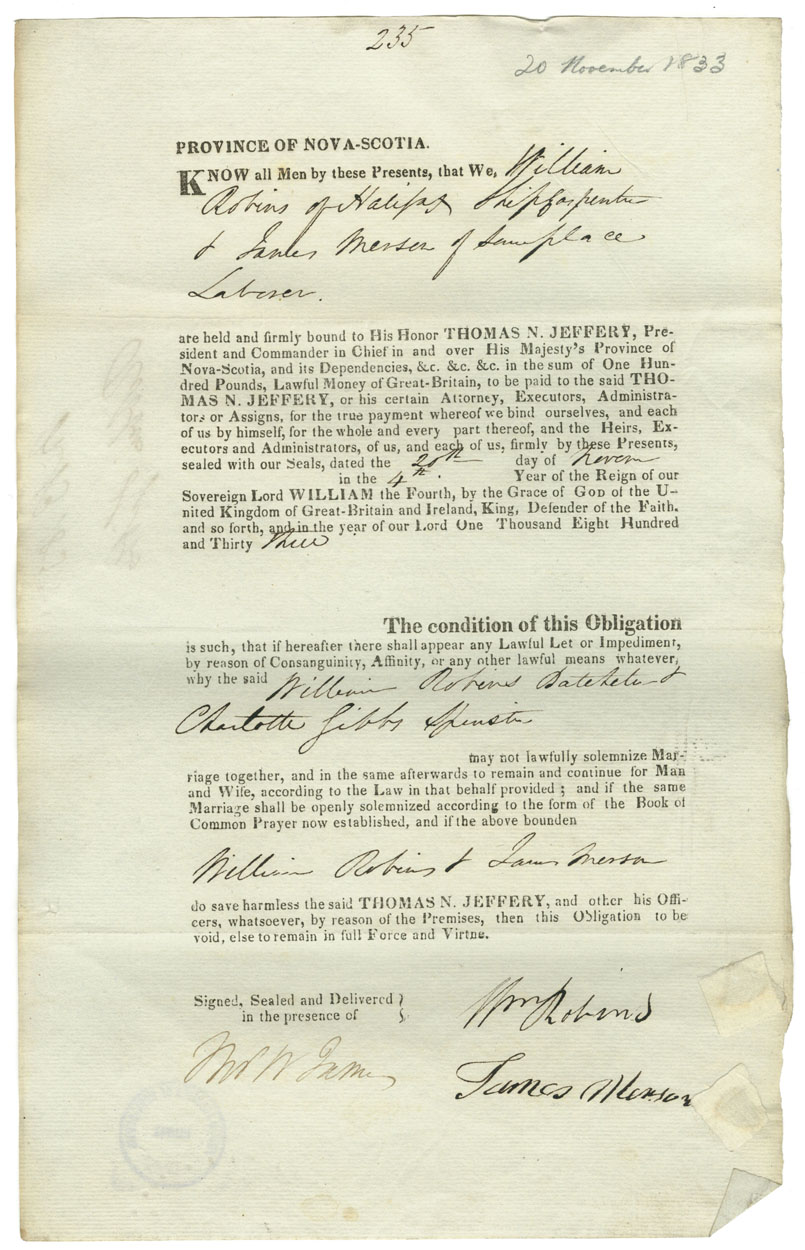 235
20 November 1833
PROVINCE OF NOVA-SCOTIA.
KNOW all Men by these Presents, that We, William
Robins of Halifax Ship Carpenter
& James Merson of same place
Laborer.
are held and firmly bound to His Honor THOMAS N. JEFFERY, Pre-
sident and Commander in Chief in and over His Majesty's Province of
Nova-Scotia, and its Dependencies, &c. &c. &c. in the sum of One Hun-
dred Pounds, Lawful Money of Great-Britain, to be paid to the said THO-
MAS N. JEFFERY, or his certain Attorney, Executors, Administra-
tors or Assigns, for the true payment whereof we bind ourselves, and each
of us by himself, for the whole and every part thereof, and the Heirs, Ex-
ecutors and Administrators, of us, and each of us, firmly by these Presents,
sealed with our Seals, dated the 20th day of Novem
in the 4th. Year of the Reign of our
Sovereign Lord WILLIAM the Fourth, by the Grace of GOD of the U-
nited Kingdom of Great-Britain and Ireland, King, Defender of the Faith.
and so forth, and in the year of our Lord One Thousand Eight Hundred
and Thirty three
The condition of this Obligation
is such, that if hereafter there shall appear any Lawful Let or Impediment,
by reason of Consanguinity, Affinity, or any other lawful means whatever,
why the said William Robins Batchelor &
Charlotte Gibbs Spinster
may not lawfully solemnize Mar-
riage together, and in the same afterwards to remain and continue for Man
and Wife, according to the Law in that behalf provided; and if the same
Marriage shall be openly solemnized according to the form of the Book of
Common Prayer now established, and if the above bounden
William Robins & James Merson
do save harmless the said THOMAS N. JEFFERY, and other his Offi-
cers, whatsoever, by reason of the Premises, then this Obligation to be
void, else to remain in full Force and Virtne.
Signed, Sealed and Delivered
in the presence of
Wm Robins
W James
James Merson